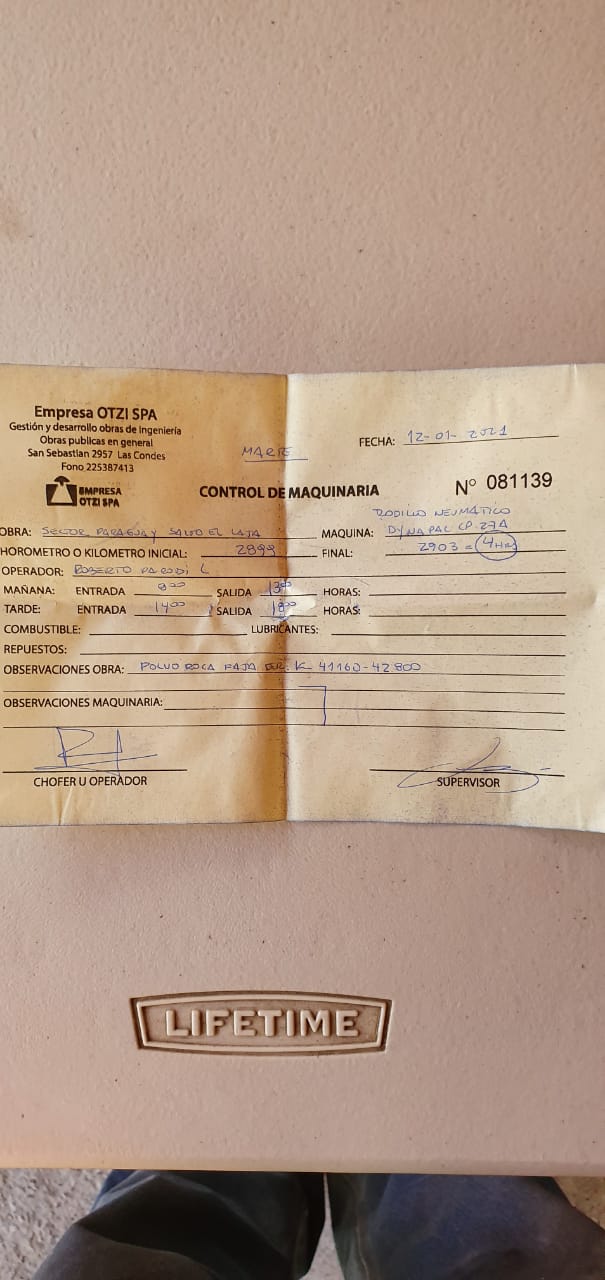 Empresa OTZI SPA
Gestión y desarrollo obras de Ingeniería
Obras publicas en general
San Sebastian 2957 Las Condes
Fono 225387413
EMPRESA
OTZI SPA
MARTE
FECHA: 12-01-2021
CONTROL DE MAQUINARIA
Nº 081139
OBRA: SECTOR PARAGUAY SALTO EL LAJA
MAQUINA: RODILLO NEUMÁTICO
DYNAPAC CP-27A
HOROMETRO O KILOMETRO INICIAL: 2899 FINAL: 2903 = 4 HRS
OPERADOR: ROBERTO PARODI L
MAÑANA: ENTRADA 8:00 SALIDA 13:00 HORAS:
TARDE: ENTRADA 14:00 SALIDA 18:00 HORAS:
COMBUSTIBLE: LUBRICANTES:
REPUESTOS:
OBSERVACIONES OBRA: POLVO ROCA FAJA DER. K 41160-42800
OBSERVACIONES MAQUINARIA:
CHOFER U OPERADOR
SUPERVISOR
LIFETIME